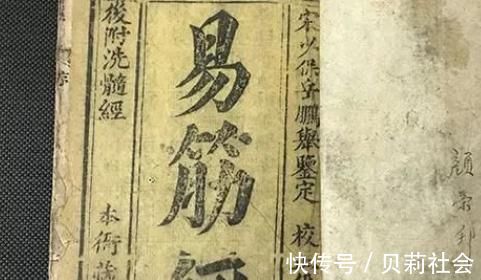 宋少保岳鵬舉鑒定 校
易筋經
後附洗髓經 本衙藏
顏
快传号 / 贝莉社会